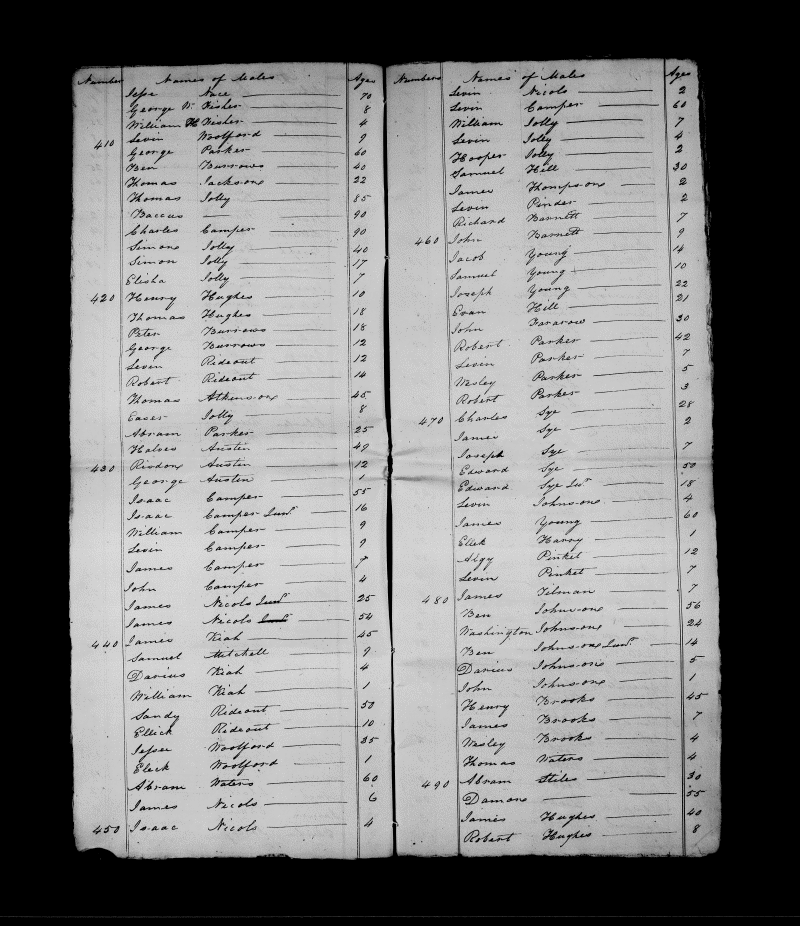 Number Names of Males Ages
Jesse Nace 70
George W. Fisher 8
William H Fisher 4
410 Levin Woolford 9
George Parker 60
Ben Burrows 40
Thomas Jackson 22
Thomas Jolly 85
Baccus 90
Charles Camper 90
Simon Jolly 40
Simon Jolly 17
Elisha Jolly 7
420 Henry Hughes 10
Thomas Hughes 18
Peter Burrows 18
George Burrows 12
Levin Rideout 12
Robert Rideout 14
Thomas Atkinson 45
Jolly 8
Abram Parker 25
Austin 49
430 Risdon Austin 12
George Austin 1
Isaac Camper 55
Isaac Camper Junr 16
William Camper 9
Levin Camper 9
James Camper 7
John Camper 4
James Nicols Junr 25
James Nicols 54
440 James Kiah 45
Samuel Mitchell 9
Darius Kiah 4
William Kiah 1
Sandy Rideout 50
Ellick Rideout 10
Jesse Woolford 35
Eleck Woolford 1
Abram Waters 60
James Nicols 6
450 Isaac Nicols 4
Numbers Names of Males Ages
Levin Nicols 2
Levin Camper 60
William Jolly 7
Levin Jolly 4
Hooper Jolly 2
Samuel Hill 30
James Thompson 2
Levin Pinder 2
Richard Barnett 7
460 John Barnett 9
Jacob Young 14
Samuel Young 10
Joseph Young 22
Evan Hill 21
John 30
Robert Parker 42
Levin Parker 7
Wesley Parker 5
Robert Parker 3
470 Charles Sye 28
James Sye 2
Joseph Sye 7
Edward Sye 50
Edward Sye Junr 18
Levin Johnson 4
James Young 60
Ellek Harry 1
Algy Pinket 12
Levin Pinket 7
480 James Tilman 7
Ben Johnson 56
Washington Johnson 24
Ben Johnson Junr 14
Darius Johnson 5
John Johnson 1
Henry Brooks 45
James Brooks 7
Wesley Brooks 4
Thomas Waters 4
490 Abram Stiles 30
Damon 55
James Hughes 40
Robert Hughes 8